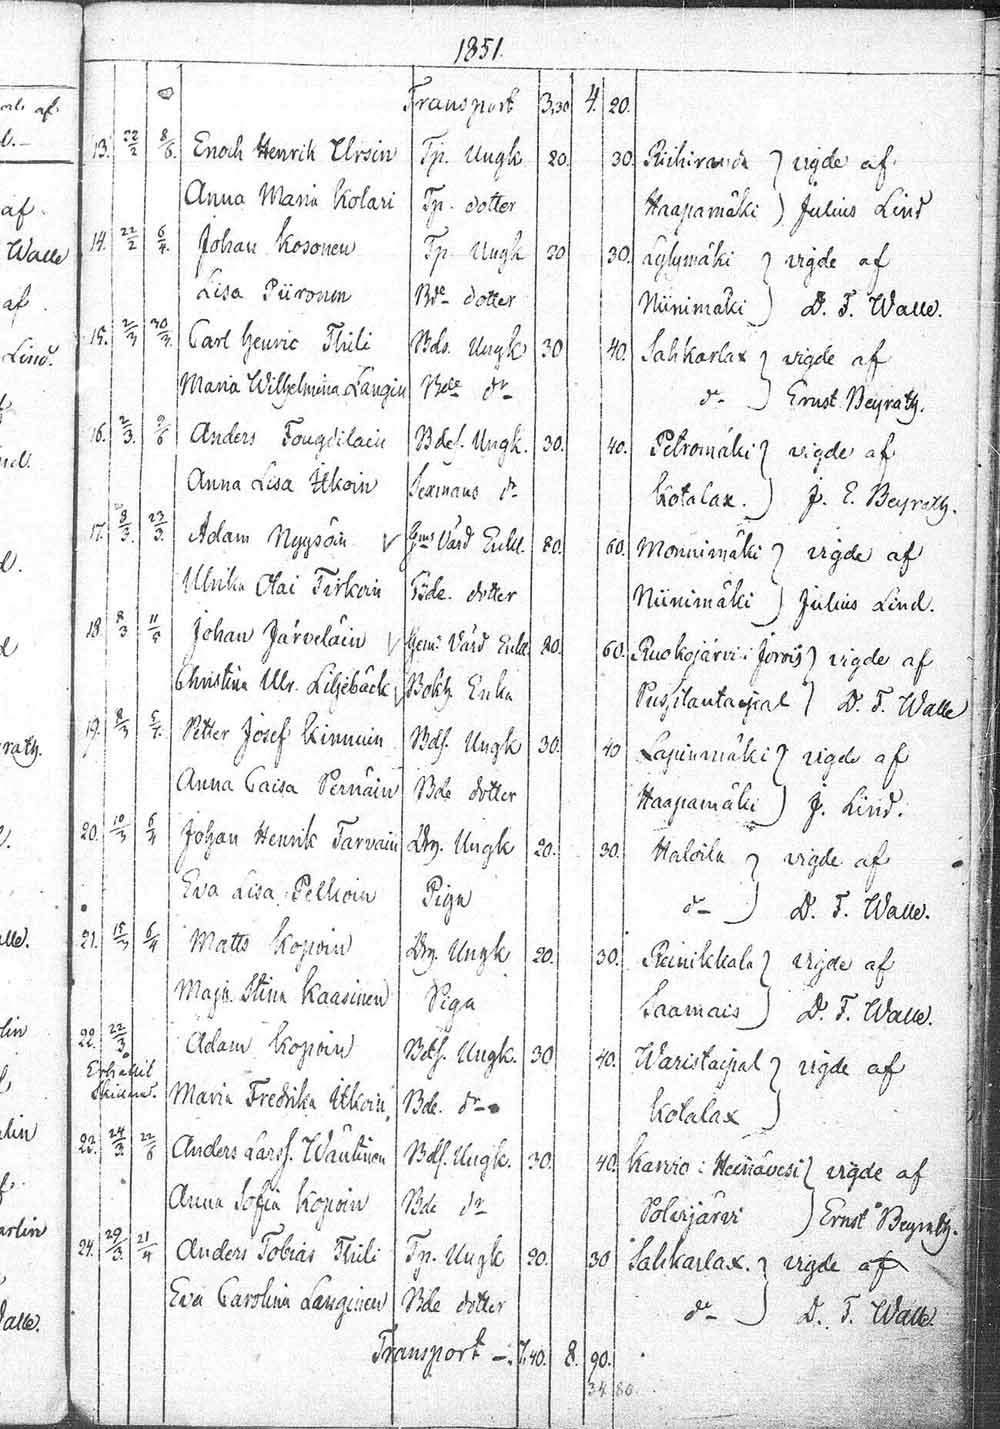 1851.
Transport 3.30 4. 20.
13. 22/2 8/6. Enoch Henrik Ursin Tp. Ungk 20. 30. Riihiranda } vigde af
Anna Maria Kolari Tp. dotter Haapamäki ) Julius Lind
14. 22/2 6/4. Johan Kosonen Tp. Ungk 20 30. Lylymäki } vigde af
Lisa Piironen Bde dotter Niinimäki ) D. F. Walle.
15. 2/3 30/3. Carl Henric Thili Bds. Ungk 30 40. Sahkarlax } vigde af
Maria Wilhelmina Langin Bde dr do ) Ernst Beyrath.
16. 2/3. 9/6 Anders Fougdilain Bdes. Ungk. 30. 40. Petromäki } vigde af
Anna Lisa Itkoin Sexmans dr Kotalax. ) J. E. Beyrath.
17. 8/3. 23/3. Adam Nyysöin Hems Värd Enkl. 80. 60. Monnimäki } vigde af
Ulrika Olai Tirkoin dotter Niinimäki ) Julius Lind.
18 8/3 Johan Järveläin Hems Värd Enkl. 60. Ruokojärvi i Jorois } vigde af
Christina Ulr. Liljebäck Bokh Enka D. F. Walle
19. 8/3 Petter Josef Kinnuin Bds. Ungk 30. 40 Lapinmäki } vigde af
Anna Caisa Pernäin Bde dotter Haapamäki ) J. Lind.
20. 10/3 6/4 Johan Henrik Tarvain Drg. Ungk 20. 30. Halola } vigde af
Eva Lisa Pelkoin Piga do ) D. F. Walle.
21. 15/3 6/4 Matts Kopoin Drg. Ungk 20. 30. Reinikkala } vigde af
Maja Stina Kaasinen Piga Saamais ) D. F. Walle.
22. 22/3 Adam Kopoin Bds. Ungk. 30 40. Waristaipal } vigde af
Erhållit
Maria Fredrika Itkoin Bde. dr Kotalax )
23. 24/3. 22/6 Anders Larss. Wäntinen Bds. Ungk. 30. 40. Karvio i Heinävesi } vigde af
Anna Sofia Kopoin Bde dr Polvijärvi ) Ernst Beyrath.
24. 29/3. 21/4 Anders Tobias Thili Tp. Ungk 20. 30 Sahkarlax. } vigde af
Eva Carolina Langinen Bde dotter do ) D. F. Walle.
Transport 7.40. 8. 90.
34 80.